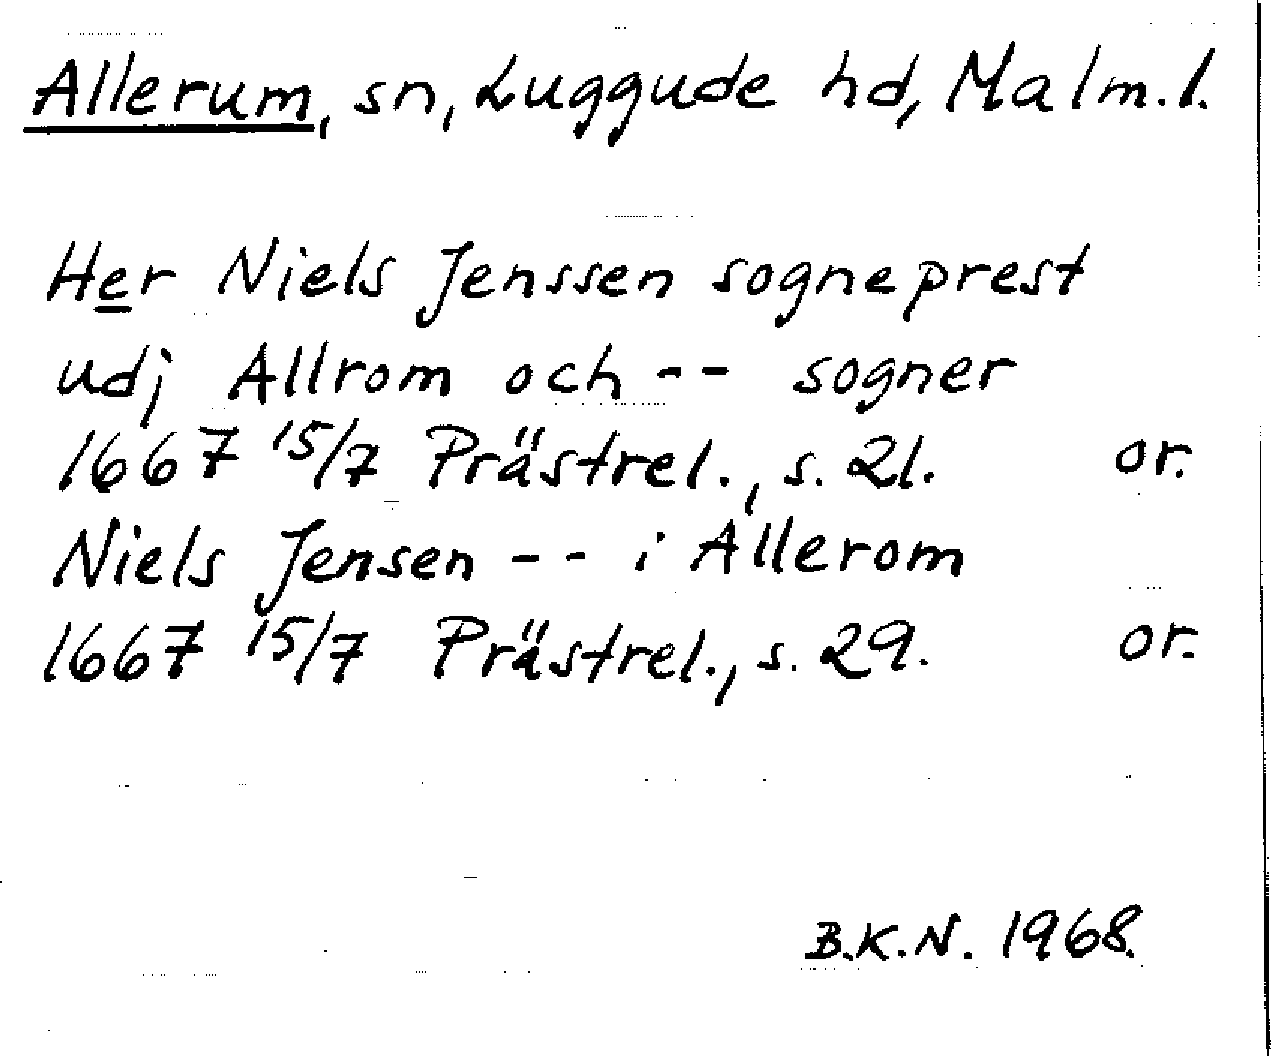 Allerum, sn, Luggude hd, Malm.l.
Her Niels Jenssen sogneprest
udj Allrom och -- sogner
1667 15/7 Prästrel., s. 21. or.
Niels Jensen -- i Allerom
1667 15/7 Prästrel., s. 29. or.
B.K.N. 1968.